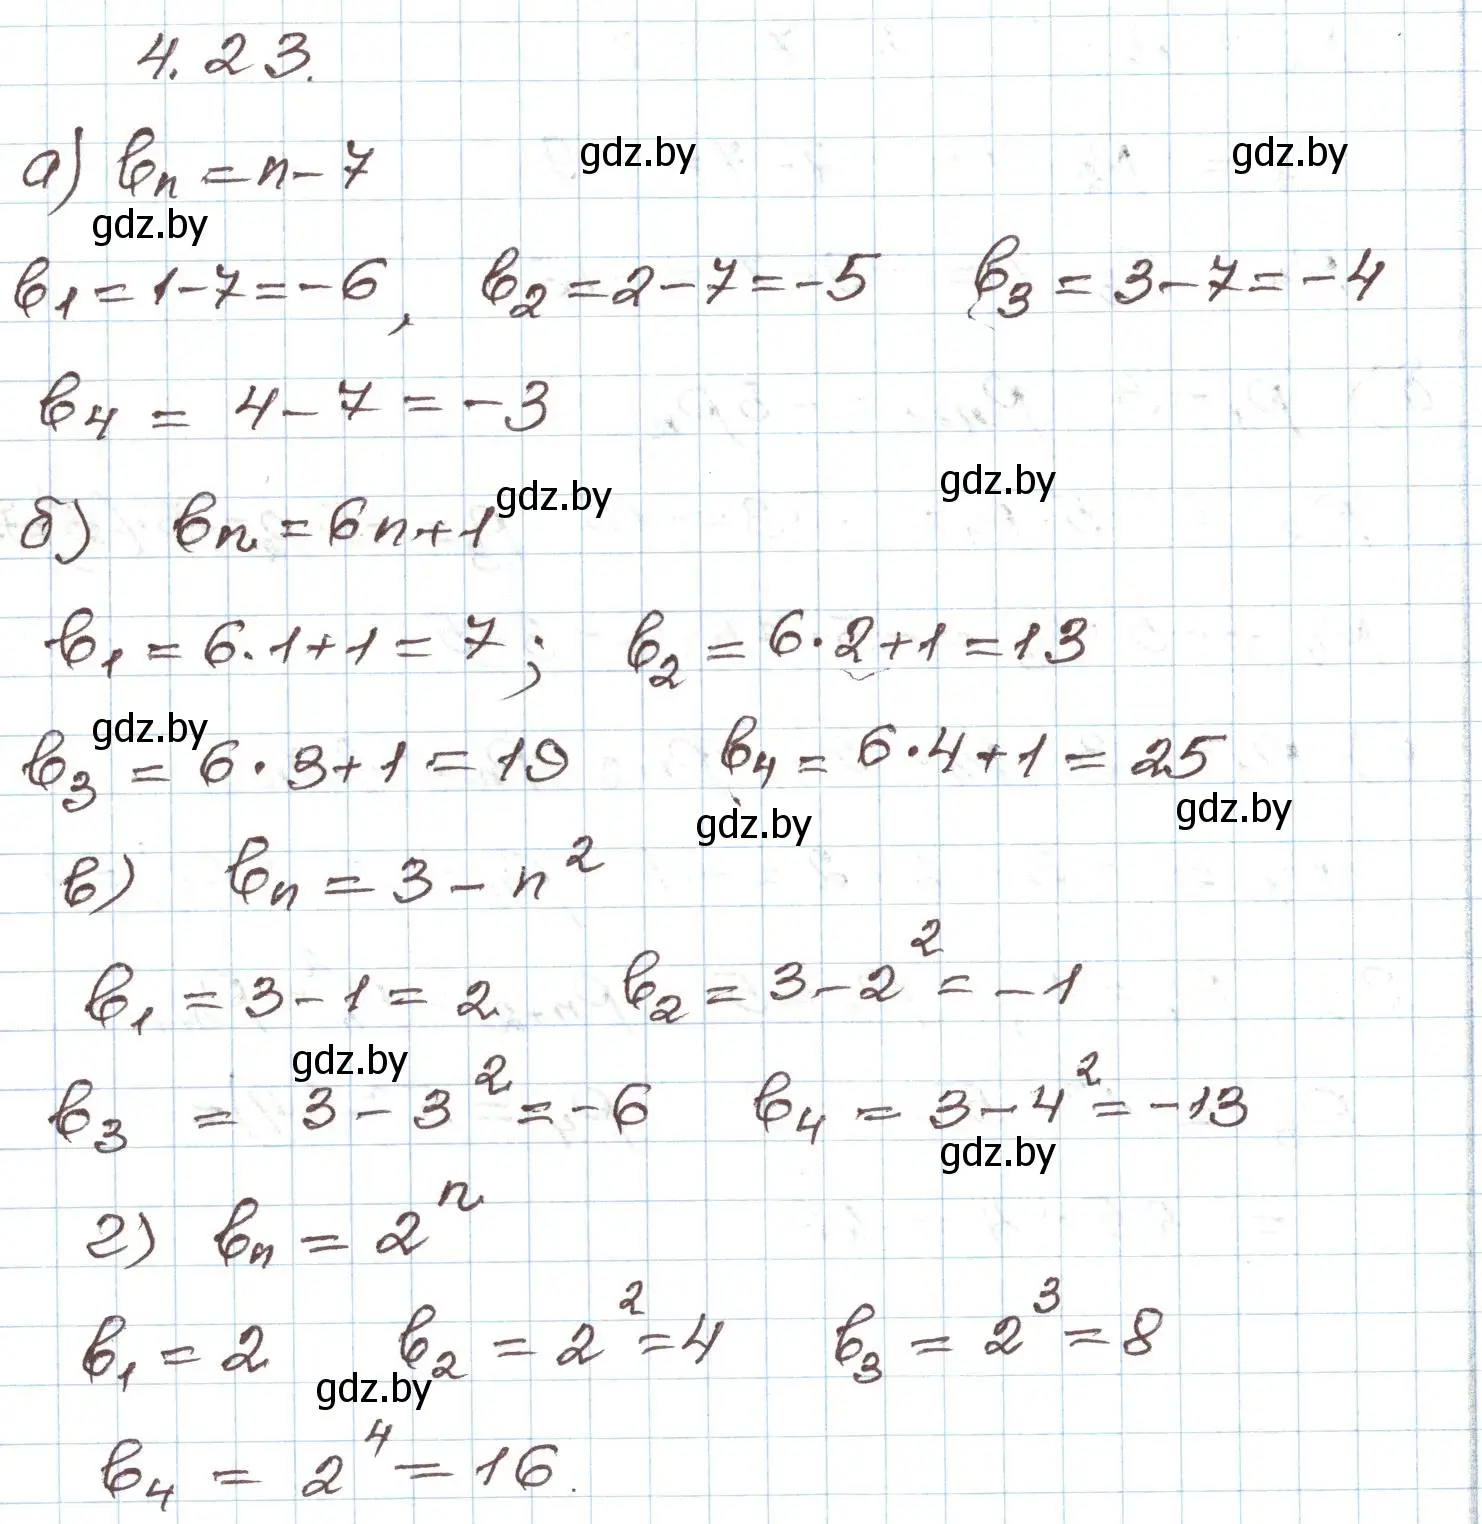 4.23.
а) bₙ = n - 7
gdz.by gdz.by
gdz.by
b₁ = 1 - 7 = -6, b₂ = 2 - 7 = -5 b₃ = 3 - 7 = -4
b₄ = 4 - 7 = -3
gdz.by gdz.by
б) bₙ = 6n + 1
b₁ = 6·1 + 1 = 7; b₂ = 6·2 + 1 = 13
gdz.by
b₃ = 6·3 + 1 = 19 b₄ = 6·4 + 1 = 25
gdz.by gdz.by
в) bₙ = 3 - n²
b₁ = 3 - 1 = 2 b₂ = 3 - 2² = -1
gdz.by
b₃ = 3 - 3² = -6 b₄ = 3 - 4² = -13
gdz.by
г) bₙ = 2ⁿ
b₁ = 2 b₂ = 2² = 4 b₃ = 2³ = 8
gdz.by
b₄ = 2⁴ = 16.